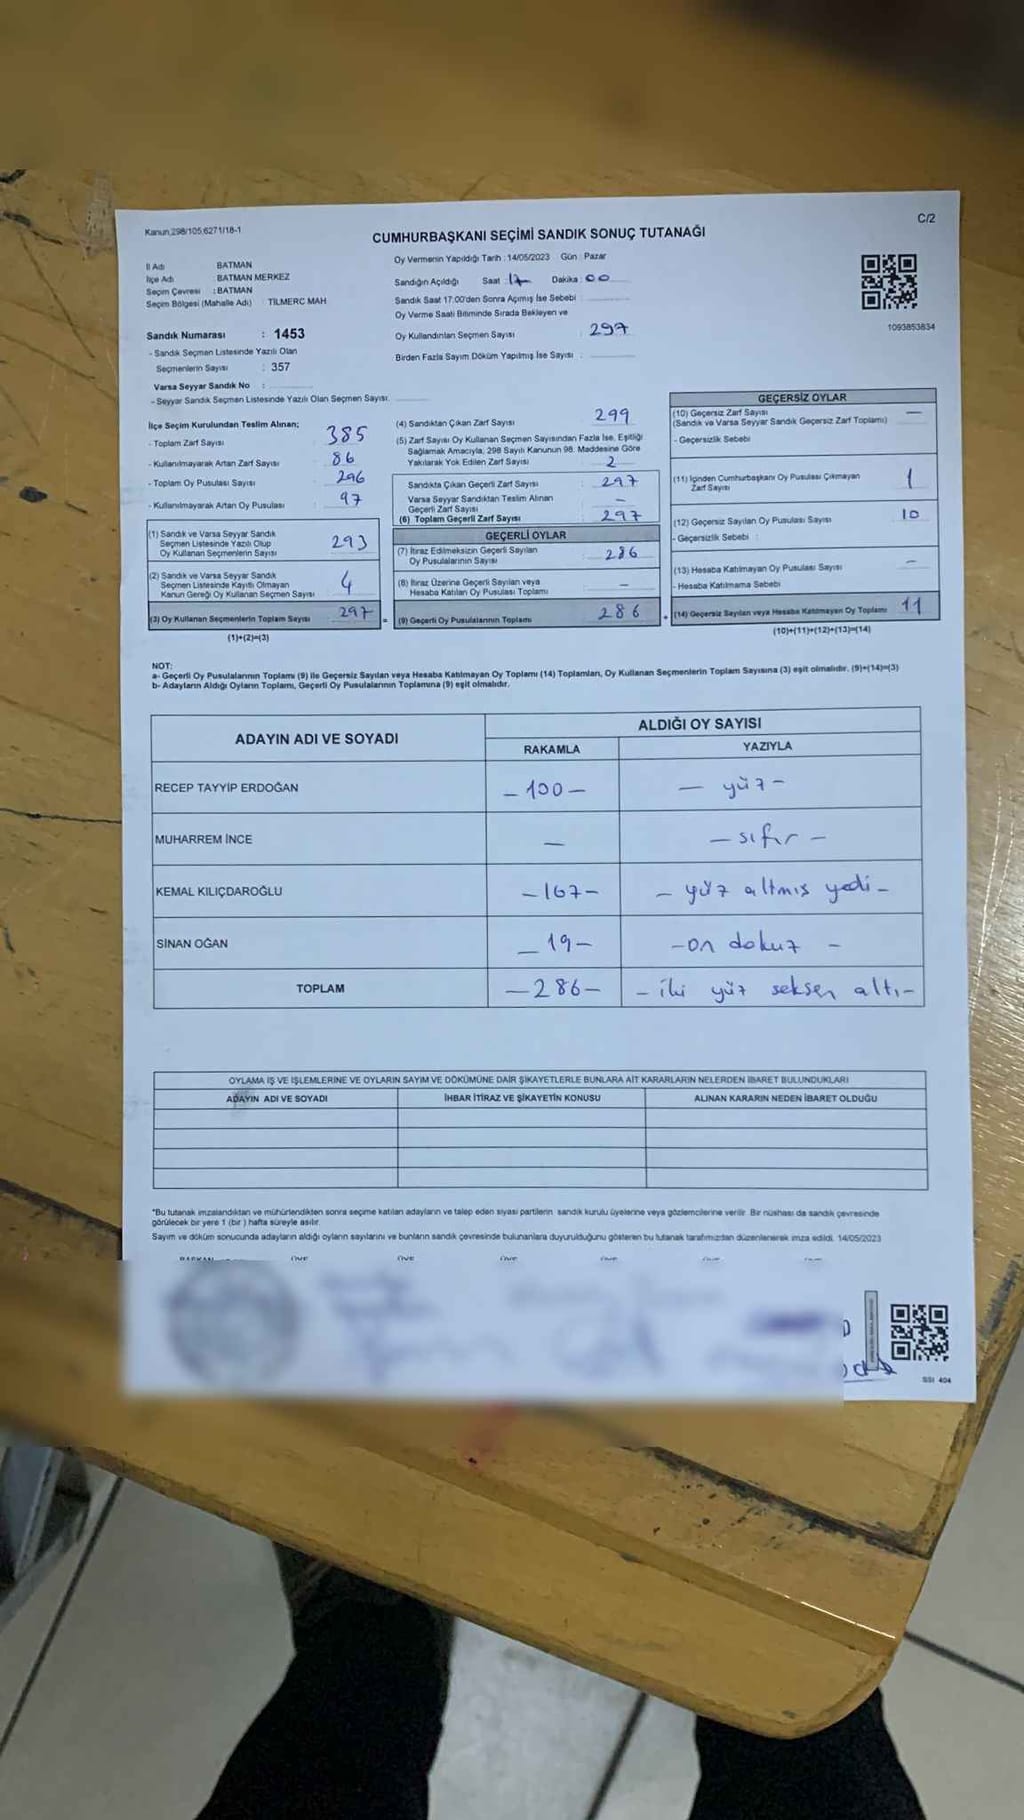 Kanun 298/105,6271/18-1
C/2
CUMHURBAŞKANI SEÇİMİ SANDIK SONUÇ TUTANAĞI
İl Adı BATMAN
İlçe Adı : BATMAN MERKEZ
Seçim Çevresi : BATMAN
Seçim Bölgesi (Mahalle Adı) TİLMERC MAH
Sandık Numarası : 1453
- Sandık Seçmen Listesinde Yazılı Olan
Seçmenlerin Sayısı : 357
Varsa Seyyar Sandık No :
- Seyyar Sandık Seçmen Listesinde Yazılı Olan Seçmen Sayısı:
Oy Vermenin Yapıldığı Tarih : 14/05/2023 Gün : Pazar
Sandığın Açıldığı Saat : 17 Dakika : 00
Sandık Saat 17.00'den Sonra Açılmış İse Sebebi :
Oy Verme Saati Bitiminde Sırada Bekleyen ve
Oy Kullandırılan Seçmen Sayısı : 297
Birden Fazla Sayım Döküm Yapılmış İse Sayısı :
1093853834
İlçe Seçim Kurulundan Teslim Alınan;
- Toplam Zarf Sayısı : 385
- Kullanılmayarak Artan Zarf Sayısı : 86
- Toplam Oy Pusulası Sayısı : 296
- Kullanılmayarak Artan Oy Pusulası : 97
(1) Sandık ve Varsa Seyyar Sandık
Seçmen Listesinde Yazılı Olup
Oy Kullanan Seçmenlerin Sayısı 293
(2) Sandık ve Varsa Seyyar Sandık
Seçmen Listesinde Kayıtlı Olmayan
Kanun Gereği Oy Kullanan Seçmen Sayısı : 4
(3) Oy Kullanan Seçmenlerin Toplam Sayısı 297
(1)+(2)=(3)
(4) Sandıktan Çıkan Zarf Sayısı 299
(5) Zarf Sayısı Oy Kullanan Seçmen Sayısından Fazla İse, Eşitliği
Sağlamak Amacıyla, 298 Sayılı Kanunun 98. Maddesine Göre
Yakılarak Yok Edilen Zarf Sayısı : 2
Sandıkta Çıkan Geçerli Zarf Sayısı : 297
Varsa Seyyar Sandıktan Teslim Alınan
Geçerli Zarf Sayısı : –
(6) Toplam Geçerli Zarf Sayısı : 297
GEÇERLİ OYLAR
(7) İtiraz Edilmeksizin Geçerli Sayılan
Oy Pusulalarının Sayısı : 286
(8) İtiraz Üzerine Geçerli Sayılan veya
Hesaba Katılan Oy Pusulası Toplamı : –
= (9) Geçerli Oy Pusulalarının Toplamı : 286
GEÇERSİZ OYLAR
(10) Geçersiz Zarf Sayısı –
(Sandık ve Varsa Seyyar Sandık Geçersiz Zarf Toplamı)
- Geçersizlik Sebebi :
(11) İçinden Cumhurbaşkanı Oy Pusulası Çıkmayan
Zarf Sayısı 1
(12) Geçersiz Sayılan Oy Pusulası Sayısı : 10
- Geçersizlik Sebebi :
(13) Hesaba Katılmayan Oy Pusulası Sayısı : –
- Hesaba Katılmama Sebebi :
+ (14) Geçersiz Sayılan veya Hesaba Katılmayan Oy Toplamı : 11
(10)+(11)+(12)+(13)=(14)
NOT:
a- Geçerli Oy Pusulalarının Toplamı (9) ile Geçersiz Sayılan veya Hesaba Katılmayan Oy Toplamı (14) Toplamları, Oy Kullanan Seçmenlerin Toplam Sayısına (3) eşit olmalıdır. (9)+(14)=(3)
b- Adayların Aldığı Oyların Toplamı, Geçerli Oy Pusulalarının Toplamına (9) eşit olmalıdır.
ADAYIN ADI VE SOYADI
ALDIĞI OY SAYISI
RAKAMLA YAZIYLA
RECEP TAYYİP ERDOĞAN – 100 – – yüz –
MUHARREM İNCE – – sıfır –
KEMAL KILIÇDAROĞLU – 167 – – yüz altmış yedi –
SİNAN OĞAN – 19 – – on dokuz –
TOPLAM – 286 – – iki yüz seksen altı –
OYLAMA İŞ VE İŞLEMLERİNE VE OYLARIN SAYIM VE DÖKÜMÜNE DAİR ŞİKAYETLERLE BUNLARA AİT KARARLARIN NELERDEN İBARET BULUNDUKLARI
ADAYIN ADI VE SOYADI İHBAR İTİRAZ VE ŞİKAYETİN KONUSU ALINAN KARARIN NEDEN İBARET OLDUĞU
"Bu tutanak imzalandıktan ve mühürlendikten sonra seçime katılan adayların ve talep eden siyasi partilerin sandık kurulu üyelerine veya gözlemcilerine verilir. Bir nüshası da sandık çevresinde
görülecek bir yere 1 (bir ) hafta süreyle asılır.
Sayım ve döküm sonucunda adayların aldığı oyların sayılarını ve bunların sandık çevresinde bulunanlara duyurulduğunu gösteren bu tutanak tarafımızdan düzenlenerek imza edildi. 14/05/2023
SSI 404